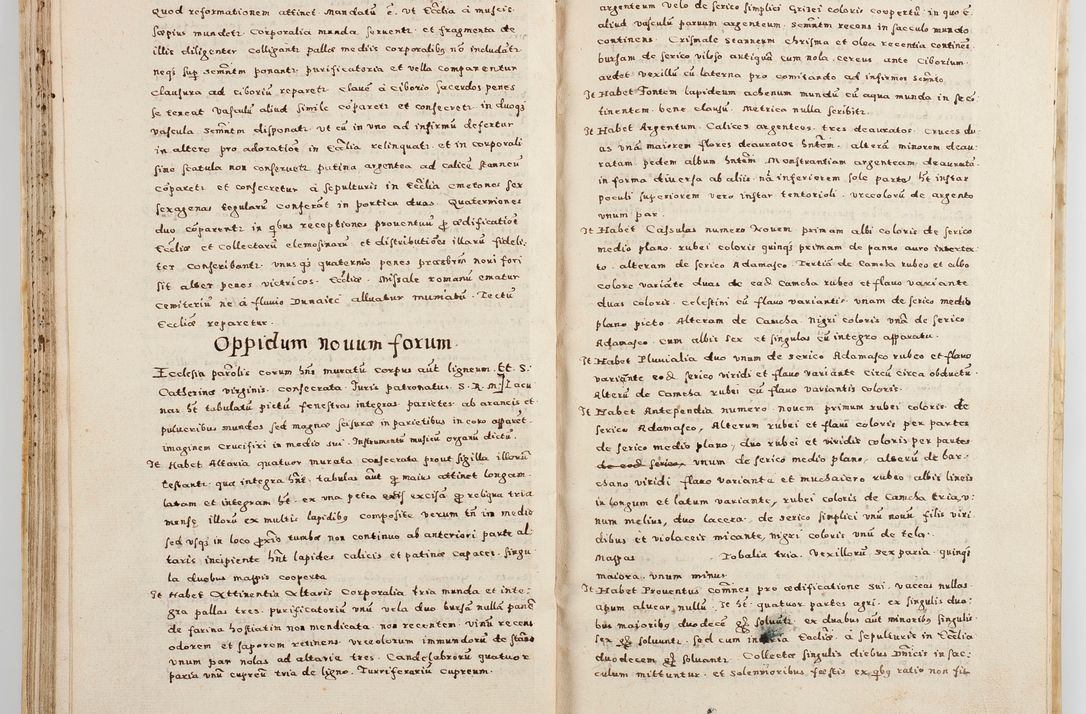 quod reformationem attinet. Mandatū ē. ut Ecclīa à muscis
sæpius mundetr Corporalia munda seruentr. et fragmenta de
illis diligenter colligantr pallæ mediis corporalibꝯ nō includātr
neqꝫ sup semntm ponantr purificatoria et vella comparentur
clausura ad ciboriū reparetr clauē à ciborio sacerdos penes
se teneat vasculū aliud simile cōparetr et consecretr in duoqꝫ
vascula semntm disponatr. ut cū in uno ad infirmū defertur
in altero pro adoratiōe in Ecclīa relinquatr. et in corporali
sino scatula non conseruetr putina argentea ad calicē stanneū
cōparetr et consecretur à sepulturis in Ecclīa cmetones sex
sexagenas tegularū conferāt in porticu duas. Quaterniones
duo cōparentr in qbus receptiones prouentuū ꝓ ædificatiōe
Ecclīæ et collectarū elemosinarū et distributiōes illarū fideli-
ter conscribantr. unus qꝫ quaternio penes præsbrm noui fori
sit alter penes victricos. Ecclīæ. Missale romanū ematur
Cemiteriū ne à fluvio Dunaiec alluatur mumatū. Tectū
Ecclīæ reparetur.
Oppidum nouum forum.
Ecclesia parōlis eorum hns muratū corpus aut ligneum. Tt. S.
Catherinæ virginis. consecrata. Iuris patronatus. S. R. M. Lacu
nar ht tabulatū pictū fenestras integras. parietes ab araneis et
pulueribus mundos sed magnæ scisuræ in parietibus in coro apparet.
imaginem crucifixi in medio sui. Instrumentū musicū organū dictū.
It Habet Altaria quatuor murata consecrata prout sigilla illorū
testantr. qua integra hnt. tabulas aut ꝓ maius attinet longam
latam et integram ht. ex una petra excisā ꝓ reliqua tria
mensæ illorū ex multis lapidibꝯ composite verum tn in medio
sed usqꝫ in loco ꝓrio tumbæ non continuo ab anteriori parte al-
taris incipiente hnt lapides calicis et patinæ capaces. singu
la duobus mappis cooperta
It Habet Attinentia Altaris Corporalia tria munda et inte-
gra pallas tres. purificatoriū unū vela duo bursā nullā panē
de farina hostiatim non mendicata. non recentem. vinū recens
odorem et saporem retinens. urceolorum immundorū de stāno
unum par nolas ad altaria tres. Candelabrorū quatuor
paria unū cupreū tria de ligno. Turriferariū cupreum.
argenteum velo de serico simplici Grisei coloris coopertū. in quo ē
aliud vasculū paruum argenteum. semntm recens in sacculo mundo
continens. Crismale stanneum chrisma et olea recentia continēs.
bursam de serico viloso antiquā cum nola. cereus ante ciborium
ardet vexillū cū laterna pro comitando ad infirmos semto
It Habet Fontem lapideum achenum mundū cū aqua munda in se cō-
tinentem. bene clausū. Metrica nulla scribitr.
It Habet Argentum. Calices argenteos tres deauratos. Cruces du-
as unā maiorem flores deauratos hntem. alterā minorem deau-
ratam pedem album hntem. Monstrantiam argenteam deauratā
in forma diuersa ab aliis. nā inferiorem sole parte. ht instar
poculi superiorem vero instar tentorioli. Urceolorū de argento
unum par.
It Habet Casulas numero Nouem. primam albi coloris de serico
medio plano. rubei coloris quinqꝫ primam de panno auro intertex-
to. alteram de serico Adamasco. Tertiā de Camcha rubeo et albo
colore variāte duas de eadē Camcha rubeo et flauo variante
duas coloris. celestini cū flauo variantis. unam de serico medio
plano picto. Alteram de Camcha. Nigri coloris unā de serico
Adamasco. cum albis sex et singulas cū integro apparatu.
It Habet Pluuialia duo unum de serico Adamasco rubeo et flauo
variāte eodē serico viridi et flauo variante circū circa obductū.
Alterū de Camcha rubei cū flauo variantis coloris.
It Habet Antependia numero nouem primum rubei coloris de
serico Adamasco, Alterum rubei et flaui coloris per partes
de serico medio plano, duo rubei et viridis coloris per partes
de eod serico, unum de serico medio plano, alterū de bar-
chano viridi flauo variante et muchaiero rubeo albis lineis
in longum et latum variante, rubei coloris de Camcha tria, u-
num melius, duo lacera, de serico simplici unū nouū filis viri-
dibus et violaceis micante, nigri coloris unū de tela.
Mappas Tobalia tria. Vexillorū sex paria. quinqꝫ
maiora, unum minus.
It Habet Prouentus comnes pro ædificatione sui. vaccas nullas
apum aluear nullū. It ht. quatuor partes agri. ex singulis duo-
bus maioribꝯ duodecē gs soluūtr. ex duabus aut minoribꝯ singulis
sex gs soluuntr. sed cum iniuria Ecclīæ. à sepulturis in Ecclīa
duodecem gs soluantr. Collectæ singulis diebus Dnicis in sac-
culum mittuntur. et solennioribus festis ex qbꝯ ratio non fit